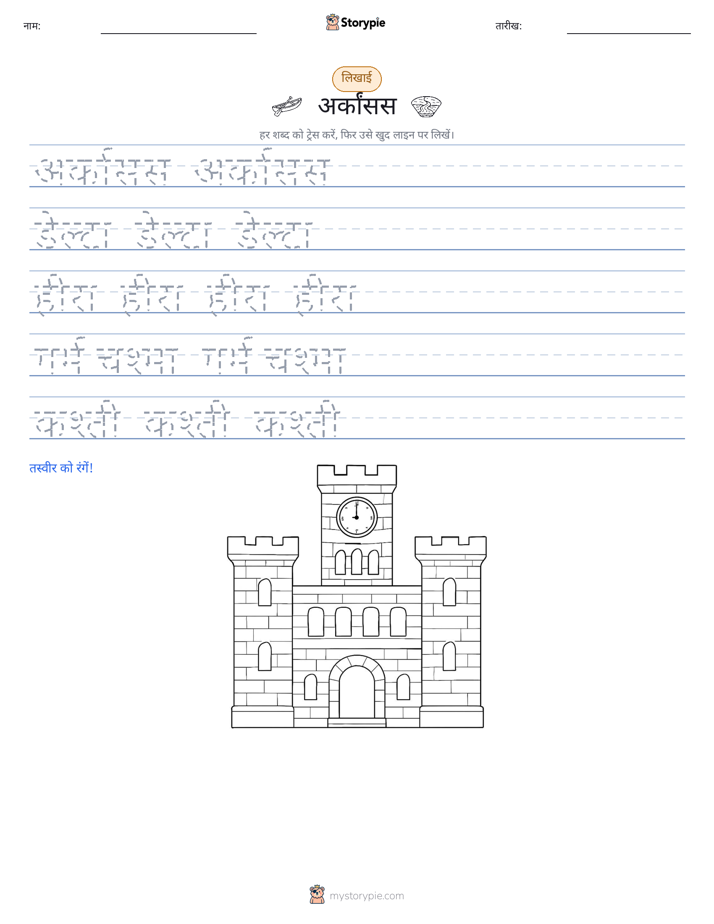 नाम:
Storypie
तारीख:
लिखाई
अर्कांसस
हर शब्द को ट्रेस करें, फिर उसे खुद लाइन पर लिखें।
अर्कांसस अर्कांसस
डेल्टा डेल्टा डेल्टा
हीरा हीरा हीरा हीरा
गर्म चश्मा गर्म चश्मा
कश्ती कश्ती कश्ती
तस्वीर को रंगें!
mystorypie.com